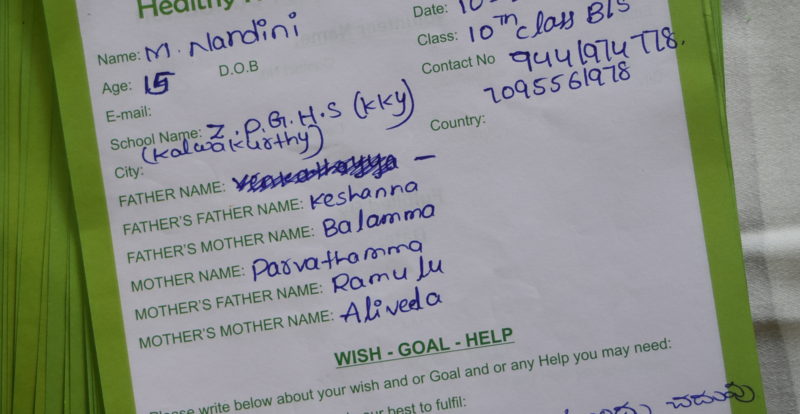 Healthy
Date: 10
Name: M. Nandini
Class: 10th class B/S
Age: 15
D.O.B
Contact No 9441974778.
7095561978
E-mail:
School Name: Z.P.G.H.S (KKY)
City: (Kalwakurthy)
Country:
FATHER NAME: –
FATHER'S FATHER NAME: Keshanna
FATHER'S MOTHER NAME: Balamma
MOTHER NAME: Parvathamma
MOTHER'S FATHER NAME: Ramulu
MOTHER'S MOTHER NAME: Aliveda
WISH - GOAL - HELP
Please write below about your wish and or Goal and or any Help you may need:
our best to fulfil:
చదువు